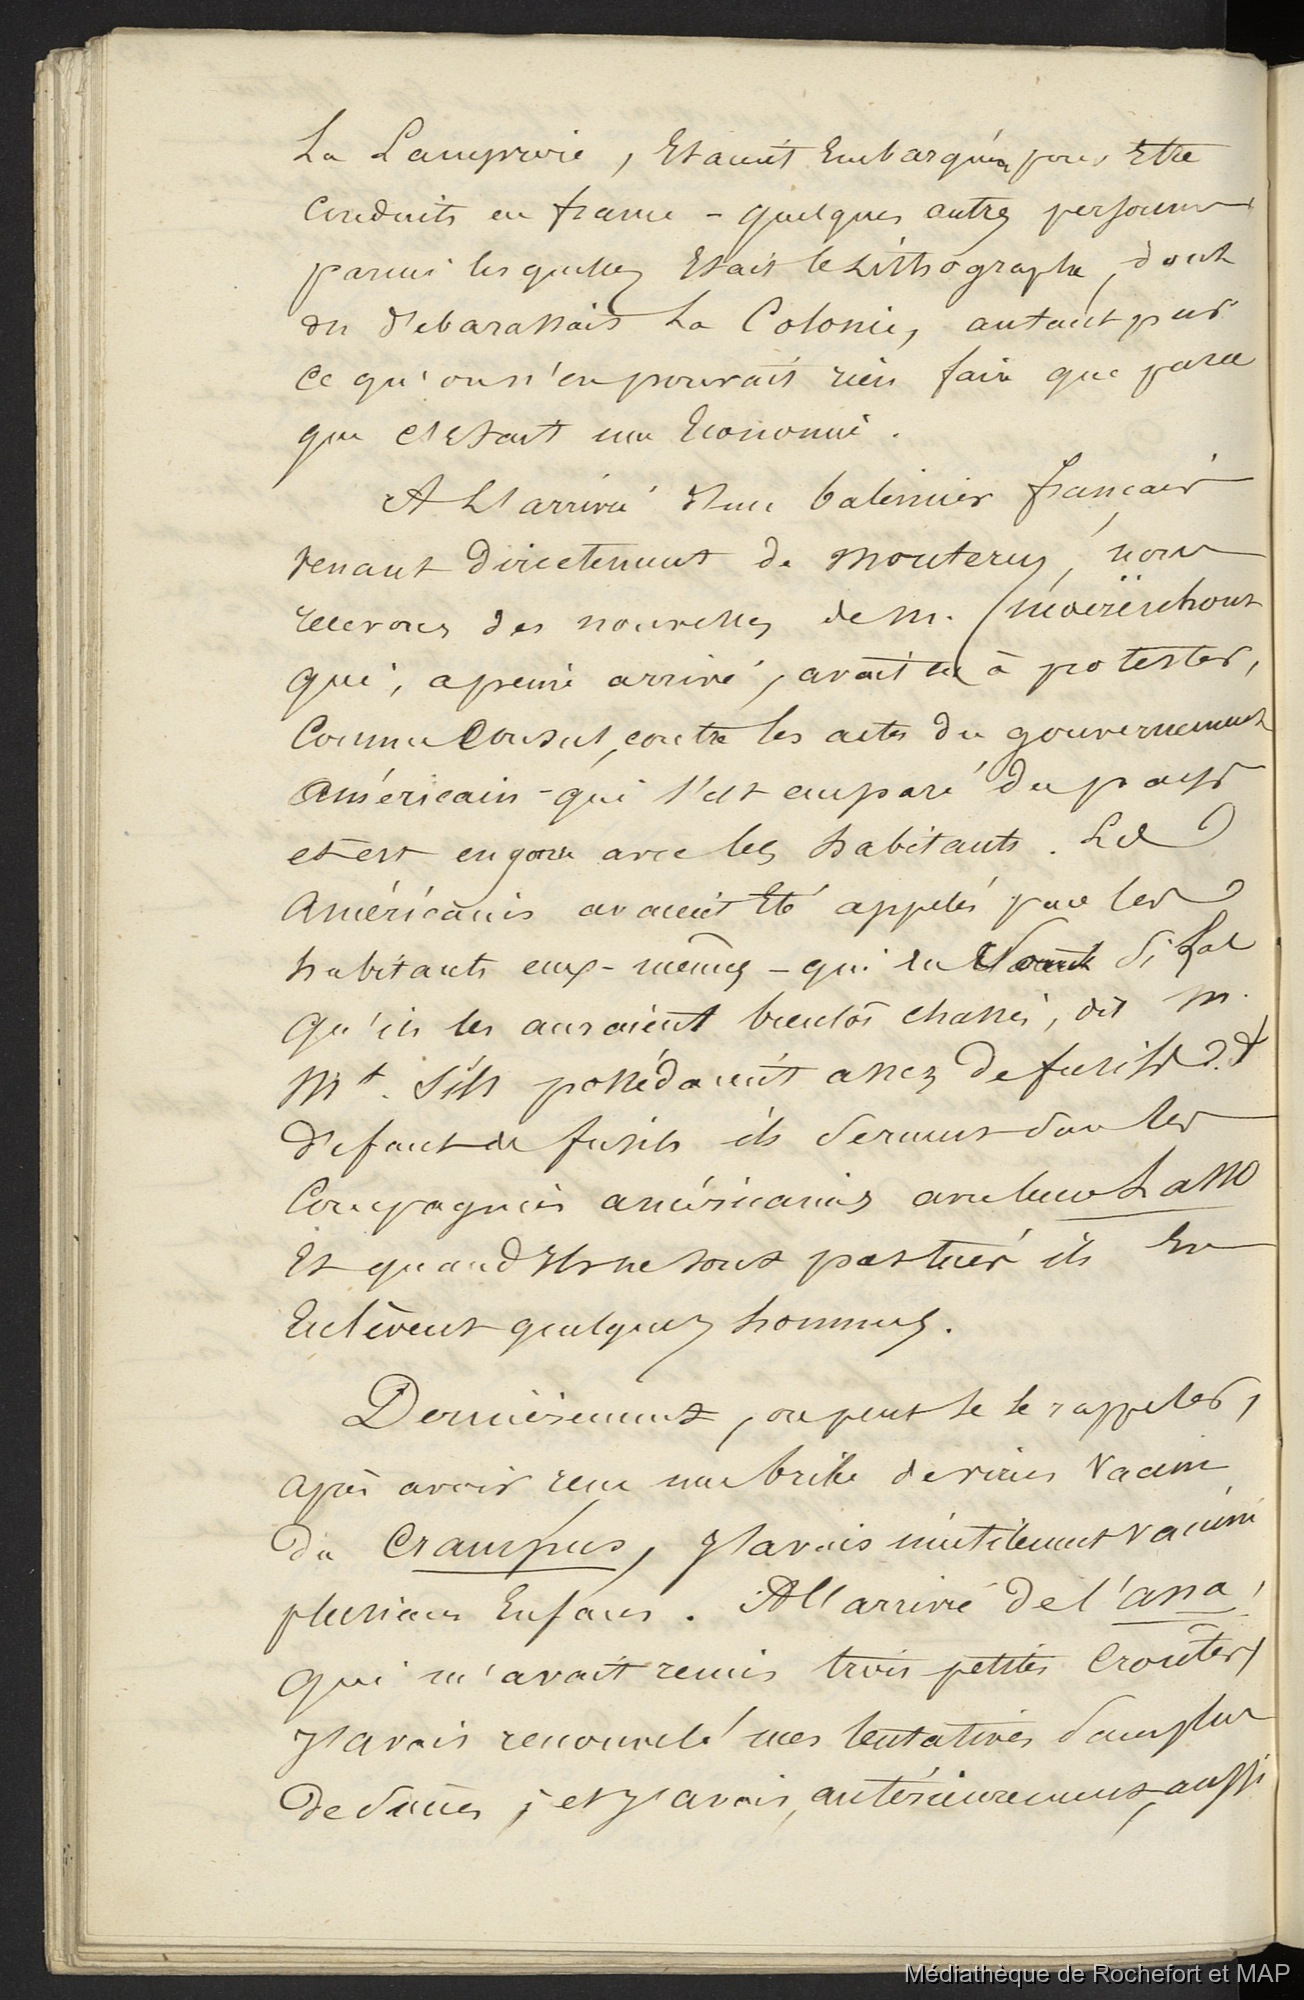 La Lamproie, Etaient Embarqués pour Etre
Conduits en france - quelques autres personnes
parmi lesquelles Etait le Lithographe, dont
on d'ebarassait La Colonie, autant par
ce qu'on n'en pouvait rien faire que parce
que c'etait une Economie.
A L'arrivée d'un baleinier français
venant Directement de Monterey, nous
recevons des nouvelles de M. Moerenhout
qui, apeine arrivé, avait eu à protester,
Comme Consul, contre les actes du gouvernement
Américain - qui s'est emparé du pays
et est en guerre avec les habitants. Les
Américains avaient Eté appelés par les
habitants eux-mêmes - qui en sont si las
qu'ils les auraient bientôt chassés, dit M.
Mt. S'ils possédaient assez de fusils. à
Défaut de fusils ils sur les
Compagnies américaines avec leur Lasso
Et quand Ils ne sont pas tués ils En
Enlèvent quelques hommes.
Dernièrement, on peut se le rappeler,
après avoir reçu une bribe de virus Vaccin
du Crampus, J'avais inutilement vacciné
plusieurs Enfans. A l'arrivée de l'Ana,
qui m'avait remis trois petites Croutes,
J'avais renouvelé mes tentatives sans plus
De Succès ; et J'avais, antérieurement, aussi
Médiathèque de Rochefort et MAP